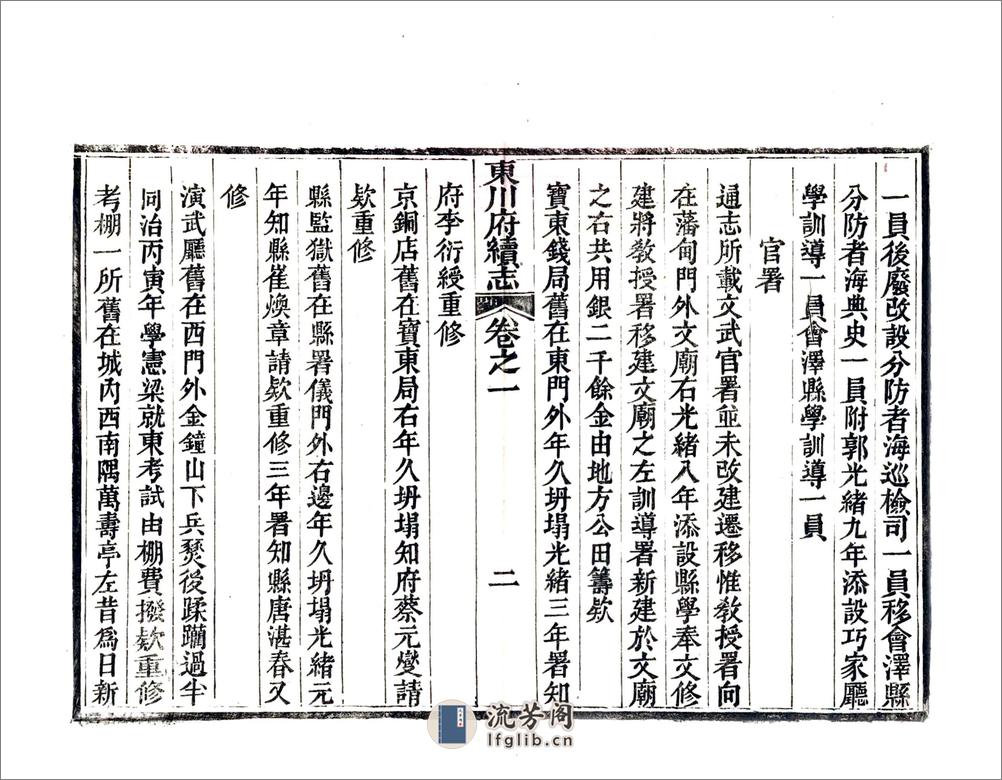 一員後廢改設分防者海巡檢司一員移會澤縣
分防者海典史一員附郭光緒九年添設巧家廳
學訓導一員會澤縣學訓導一員
官署
通志所載文武官署並未改建遷移惟敎授署向
在藩甸門外文廟右光緒八年添設縣學奉文修
建將敎授署移建文廟之左訓導署新建於文廟
之右共用銀二千餘金由地方公田籌欵
寶東錢局舊在東門外年久坍塌光緒三年署知
東川府續志 卷之一 二
府李衍綬重修
京銅店舊在寶東局右年久坍塌知府蔡元燮請
欵重修
縣監獄舊在縣署儀門外右邊年久坍塌光緒元
年知縣崔煥章請欵重修三年署知縣唐湛春又
修
演武廳舊在西門外金鐘山下兵燹後蹂躪過半
同治丙寅年學憲梁就東考試由棚費撥欵重修
考棚一所舊在城內西南隅萬壽亭左昔爲日新
流芳阁
lfglib.cn